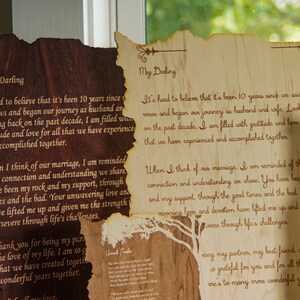 Darling
d to believe that it's been 10 years since
ws and began our journey as husband an
g back on the past decade, I am filled wi
ude and love for all that we have experience
ccomplished together.
n I think of our marriage, I am reminded
connection and understanding we share
e been my rock and my support, through
and the bad. Your unwavering love an
ve lifted me up and given me strength
rsevere through life's challenges.
hank you for being my par
love of my life. I am so g
that we have created togeth
onderful years together.
My Darling
It's hard to believe that it's been 10 years since we exc
vows and began our journey as husband and wife. Look
on the past decade, I am filled with gratitude and love
that we have experienced and accomplished together.
When I think of our marriage, I am reminded of th
connection and understanding we share. You have be
and my support, through the good times and the bad.
unwavering love and devotion have lifted me up and
severe through life's challenges.
eing my partner, my best friend
so grateful for you and for all th
re's to many more wonderful y